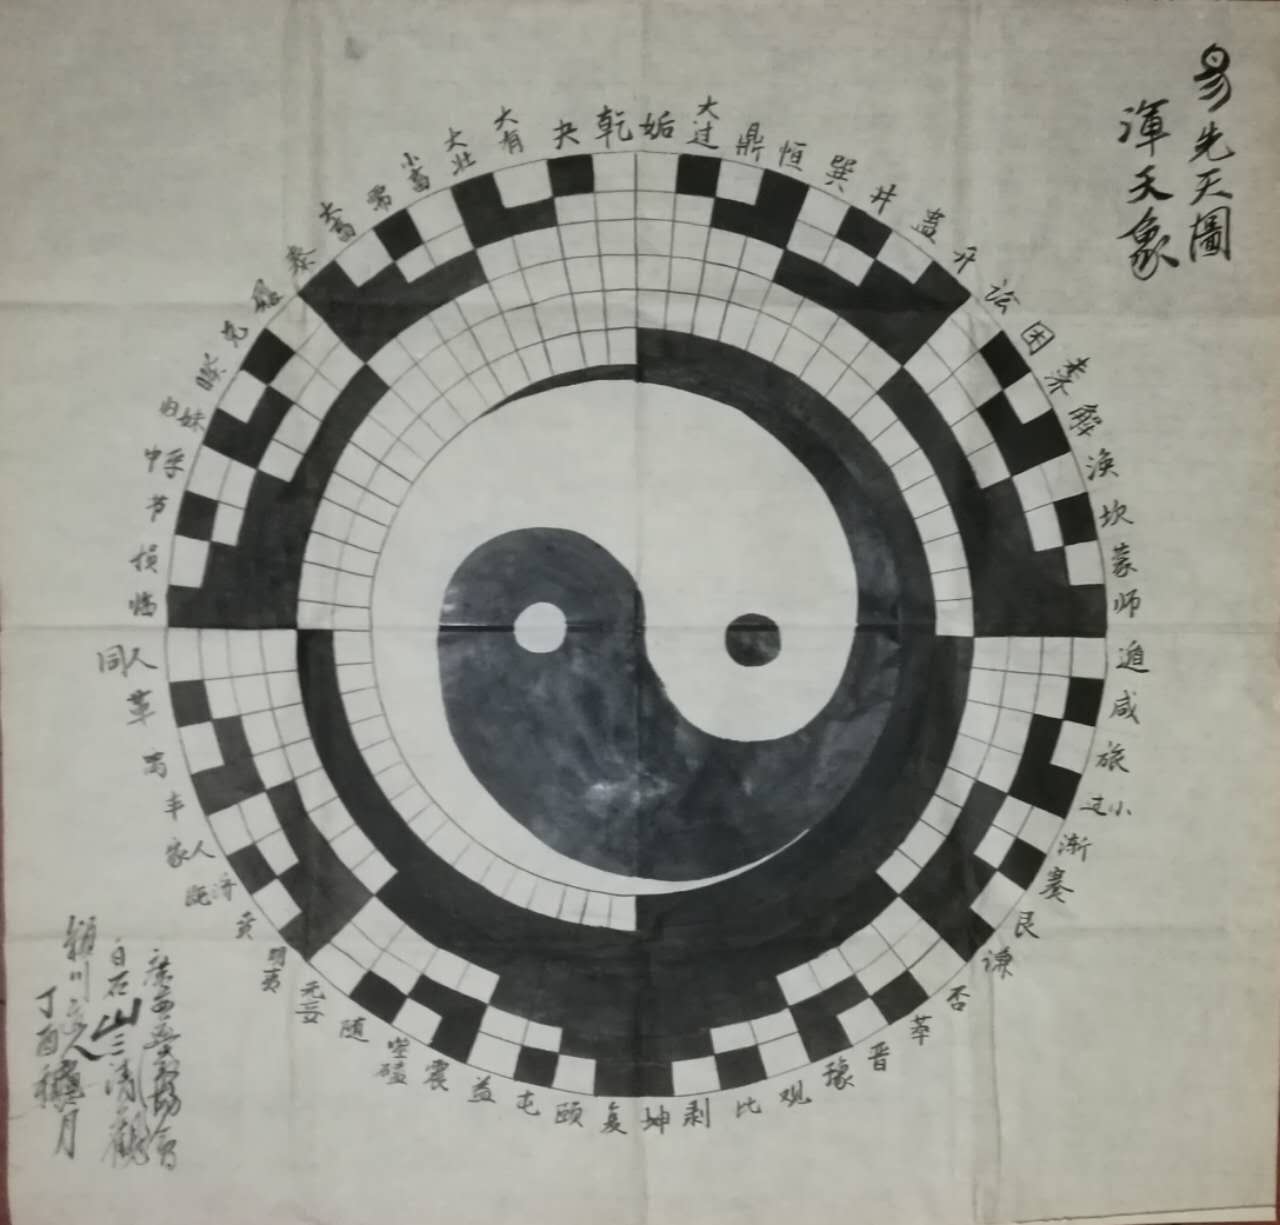 易先天圖
渾天象
乾
姤
大过
鼎
恒
巽
井
蛊
升
讼
困
未济
解
涣
坎
蒙
师
遁
咸
旅
小过
渐
蹇
艮
谦
否
萃
晋
豫
观
比
剥
坤
复
颐
屯
益
震
噬嗑
随
无妄
明夷
贲
既济
家人
丰
离
革
同人
临
损
节
中孚
归妹
睽
兑
履
泰
大畜
需
小畜
大壮
大有
夬
白石山三清觀
丁酉
月